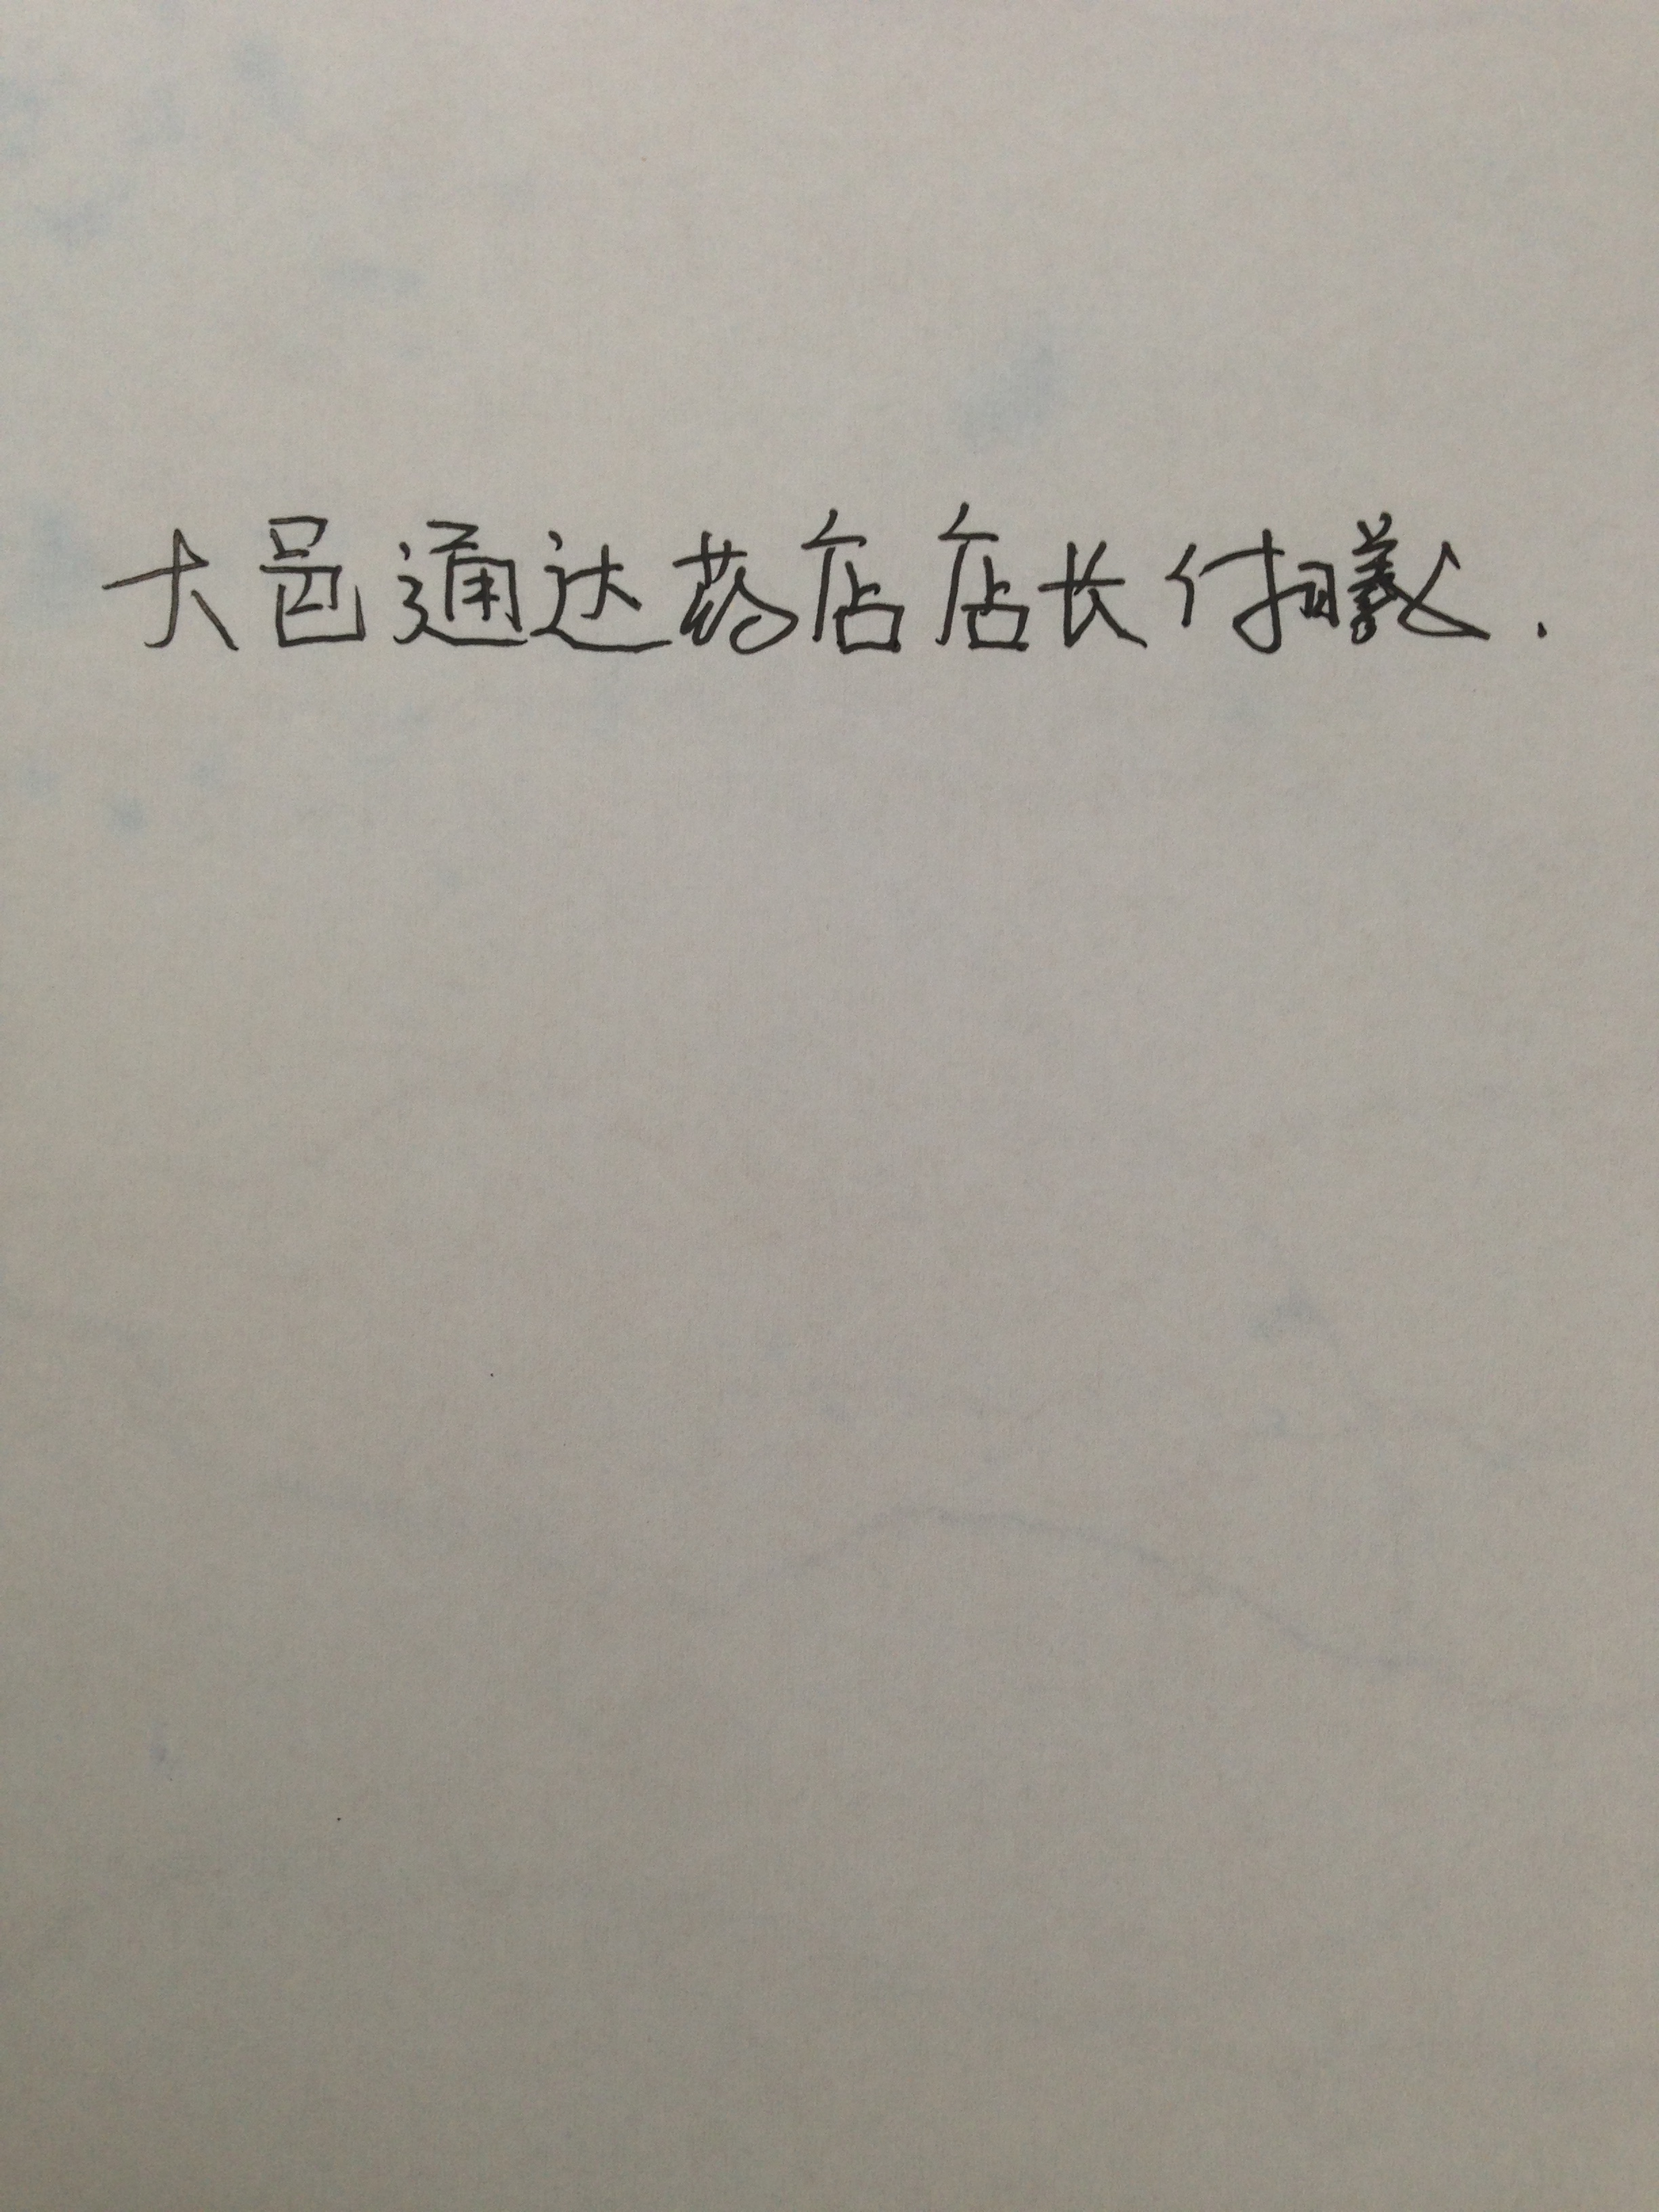 大邑通达药店店长付曦.